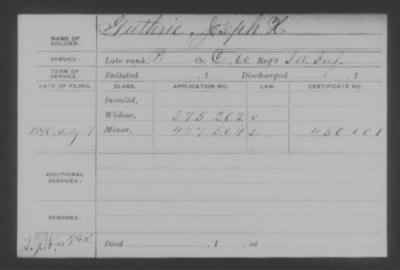 NAME OF SOLDIER: Guthrie, Joseph H.
SERVICE: Late rank P. Co. C, 60 Reg't Ill Inf.
TERM OF SERVICE: Enlisted , 1 Discharged , 1
DATE OF FILING. CLASS. APPLICATION NO. LAW. CERTIFICATE NO.
Invalid,
Widow, 575 202
1890 July 7 Minor, 477 504 450 001
ADDITIONAL SERVICES:
REMARKS:
Died , 1 , at